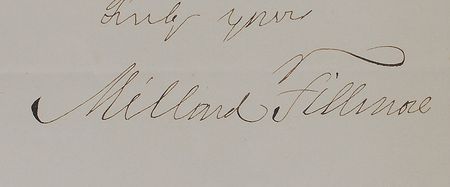 Truly yours
Millard Fillmore